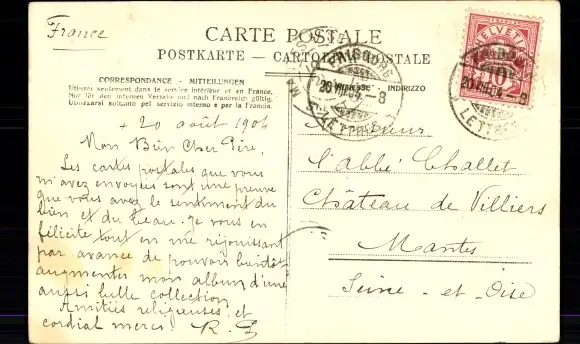 France
CARTE POSTALE
POSTKARTE — CARTOLINA POSTALE
CORRESPONDANCE - MITTEILUNGEN
Utilisez seulement dans le service intérieur et en France.
Nur für den internen Verkehr und nach Frankreich gültig.
Usarsi soltanto pel servizio interno e per la Francia.
INDIRIZZO
+ 20 août 1904
Mon Bien Cher Père,
Les cartes postales que vous
m'avez envoyées sont une preuve
que vous avez le sentiment du
bien et du beau. Je vous en
félicite tout en me réjouissant
par avance de pouvoir bientôt
augmenter mon album d'une
aussi belle collection.
Amitiés religieuses et
cordial merci. R.
Monsieur
l'abbé Challet
Château de Villiers
Mantes
Seine - et - Oise
HELVETIA
10
20 VIII 04 - 8
LETTRES